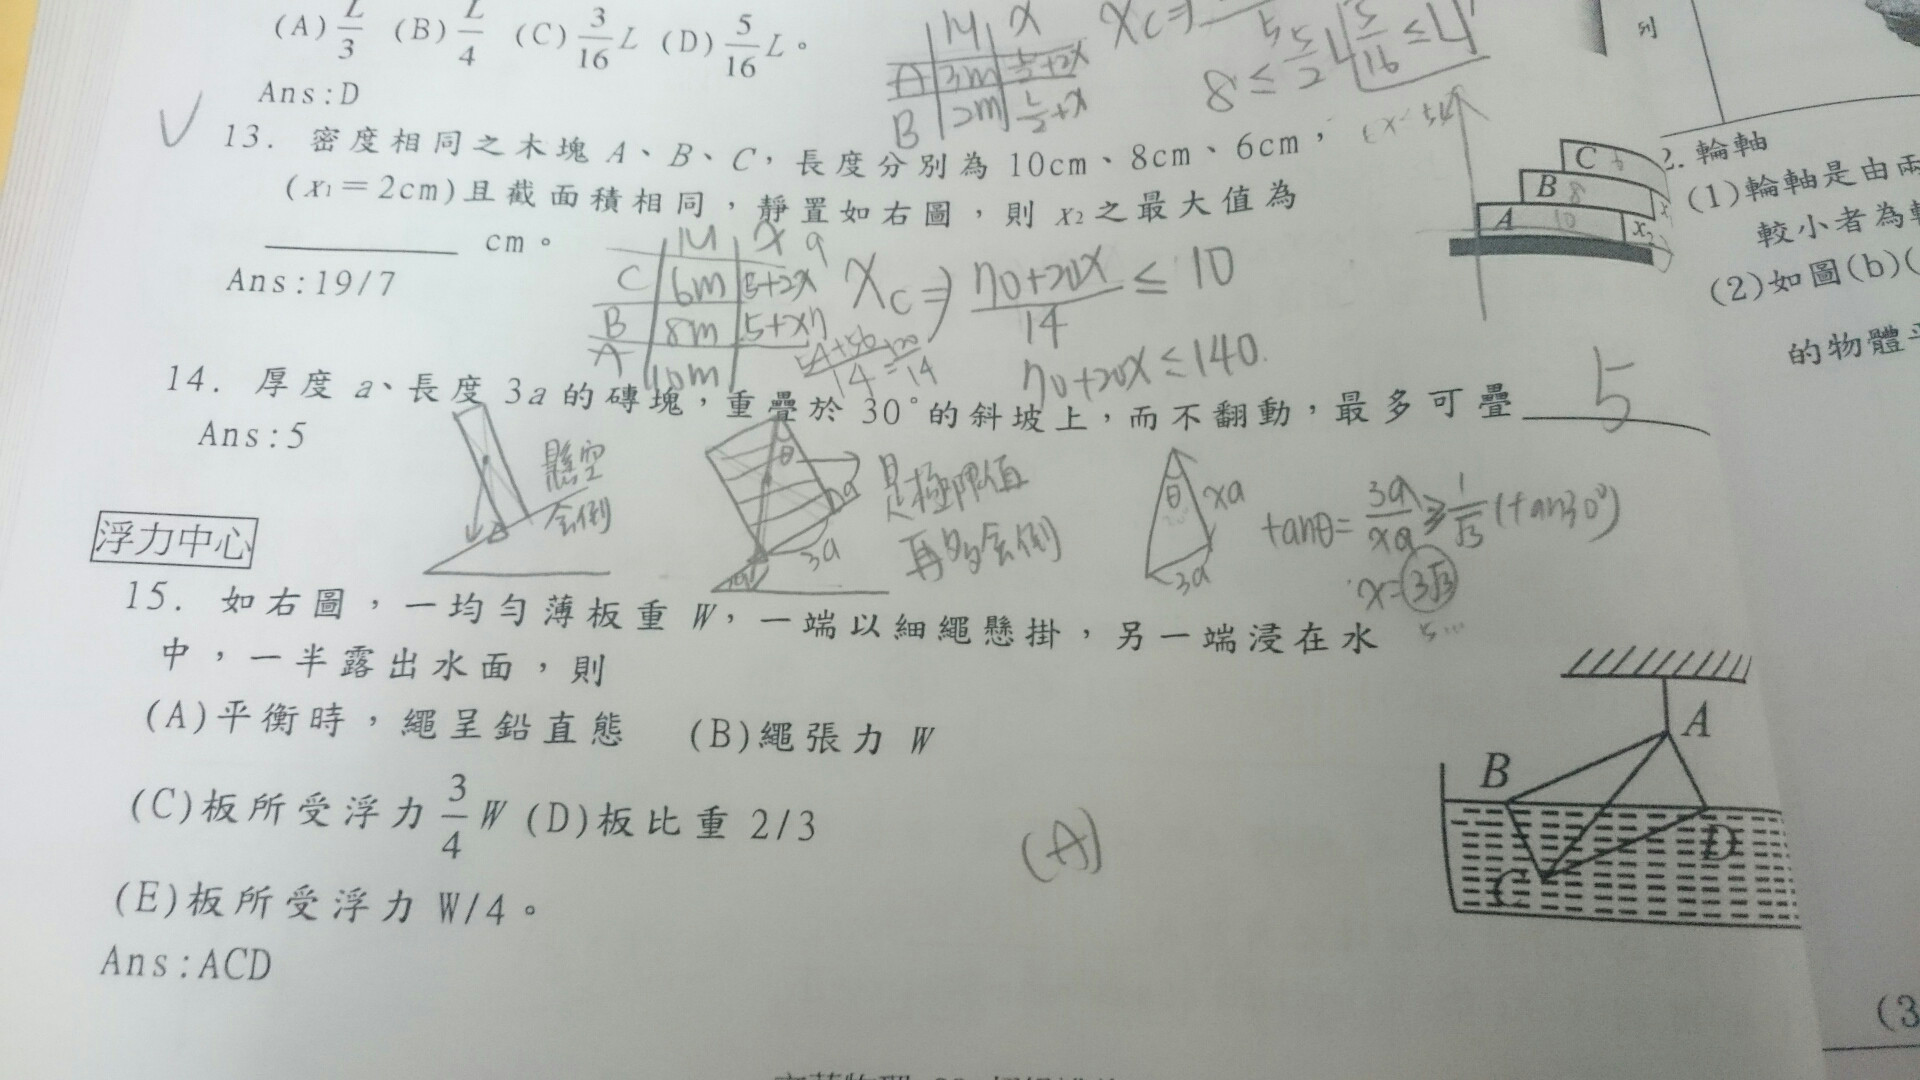 (A) L/3 (B) L/4 (C) 3/16 L (D) 5/16 L。
Ans:D
M x
A 3m L/2+2x
B 2m L/2+x
13. 密度相同之木塊 A、B、C,長度分別為 10cm、8cm、6cm,
(x₁=2cm)且截面積相同,靜置如右圖,則 x₂之最大值為
________ cm。
Ans:19/7
C
B 8
A 10 x₂
M x
C 6m 5+2x
B 8m 5+x
A 10m
Xc⇒ (70+20x)/14 ≤ 10
70+20x≤140
14. 厚度 a、長度 3a 的磚塊,重疊於 30°的斜坡上,而不翻動,最多可疊 5
Ans:5
懸空
會倒
θ
3a
是極限值
再多會倒
θ xa
3a
tanθ= 3a/xa ≥ 1/√3 (tan30°)
x=3√3
5...
浮力中心
15. 如右圖,一均勻薄板重 W,一端以細繩懸掛,另一端浸在水
中,一半露出水面,則
(A)平衡時,繩呈鉛直態 (B)繩張力 W
(C)板所受浮力 3/4 W (D)板比重 2/3
(E)板所受浮力 W/4。
(A)
Ans:ACD
A
B
C
D
列
2. 輪軸
(1)輪軸是由兩
較小者為
(2)如圖(b)(
的物體
(3